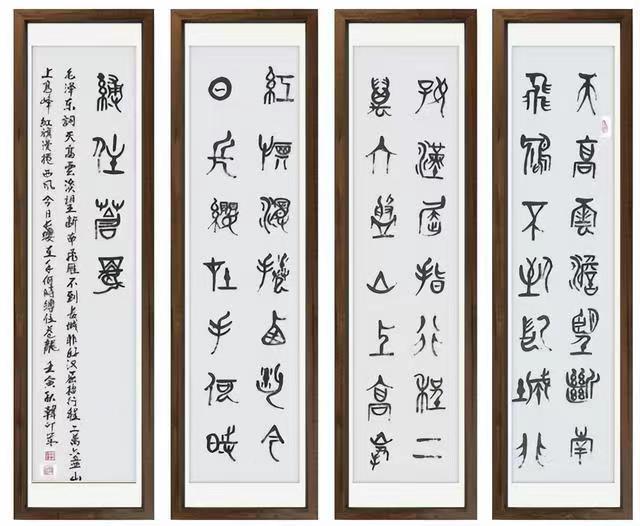 天高雲澹望斷南
飛鴈不到長城非
好漢屈指行程二
萬六盤山上高峰
紅旗漫捲西風今
日長纓在手何時
縛住蒼龍
毛泽东詞天高雲淡望断南飛雁不到长城非好汉屈指行程二萬六盘山
上高峰紅旗漫捲西风今日长纓在手何時縛住苍龍壬寅秋韓